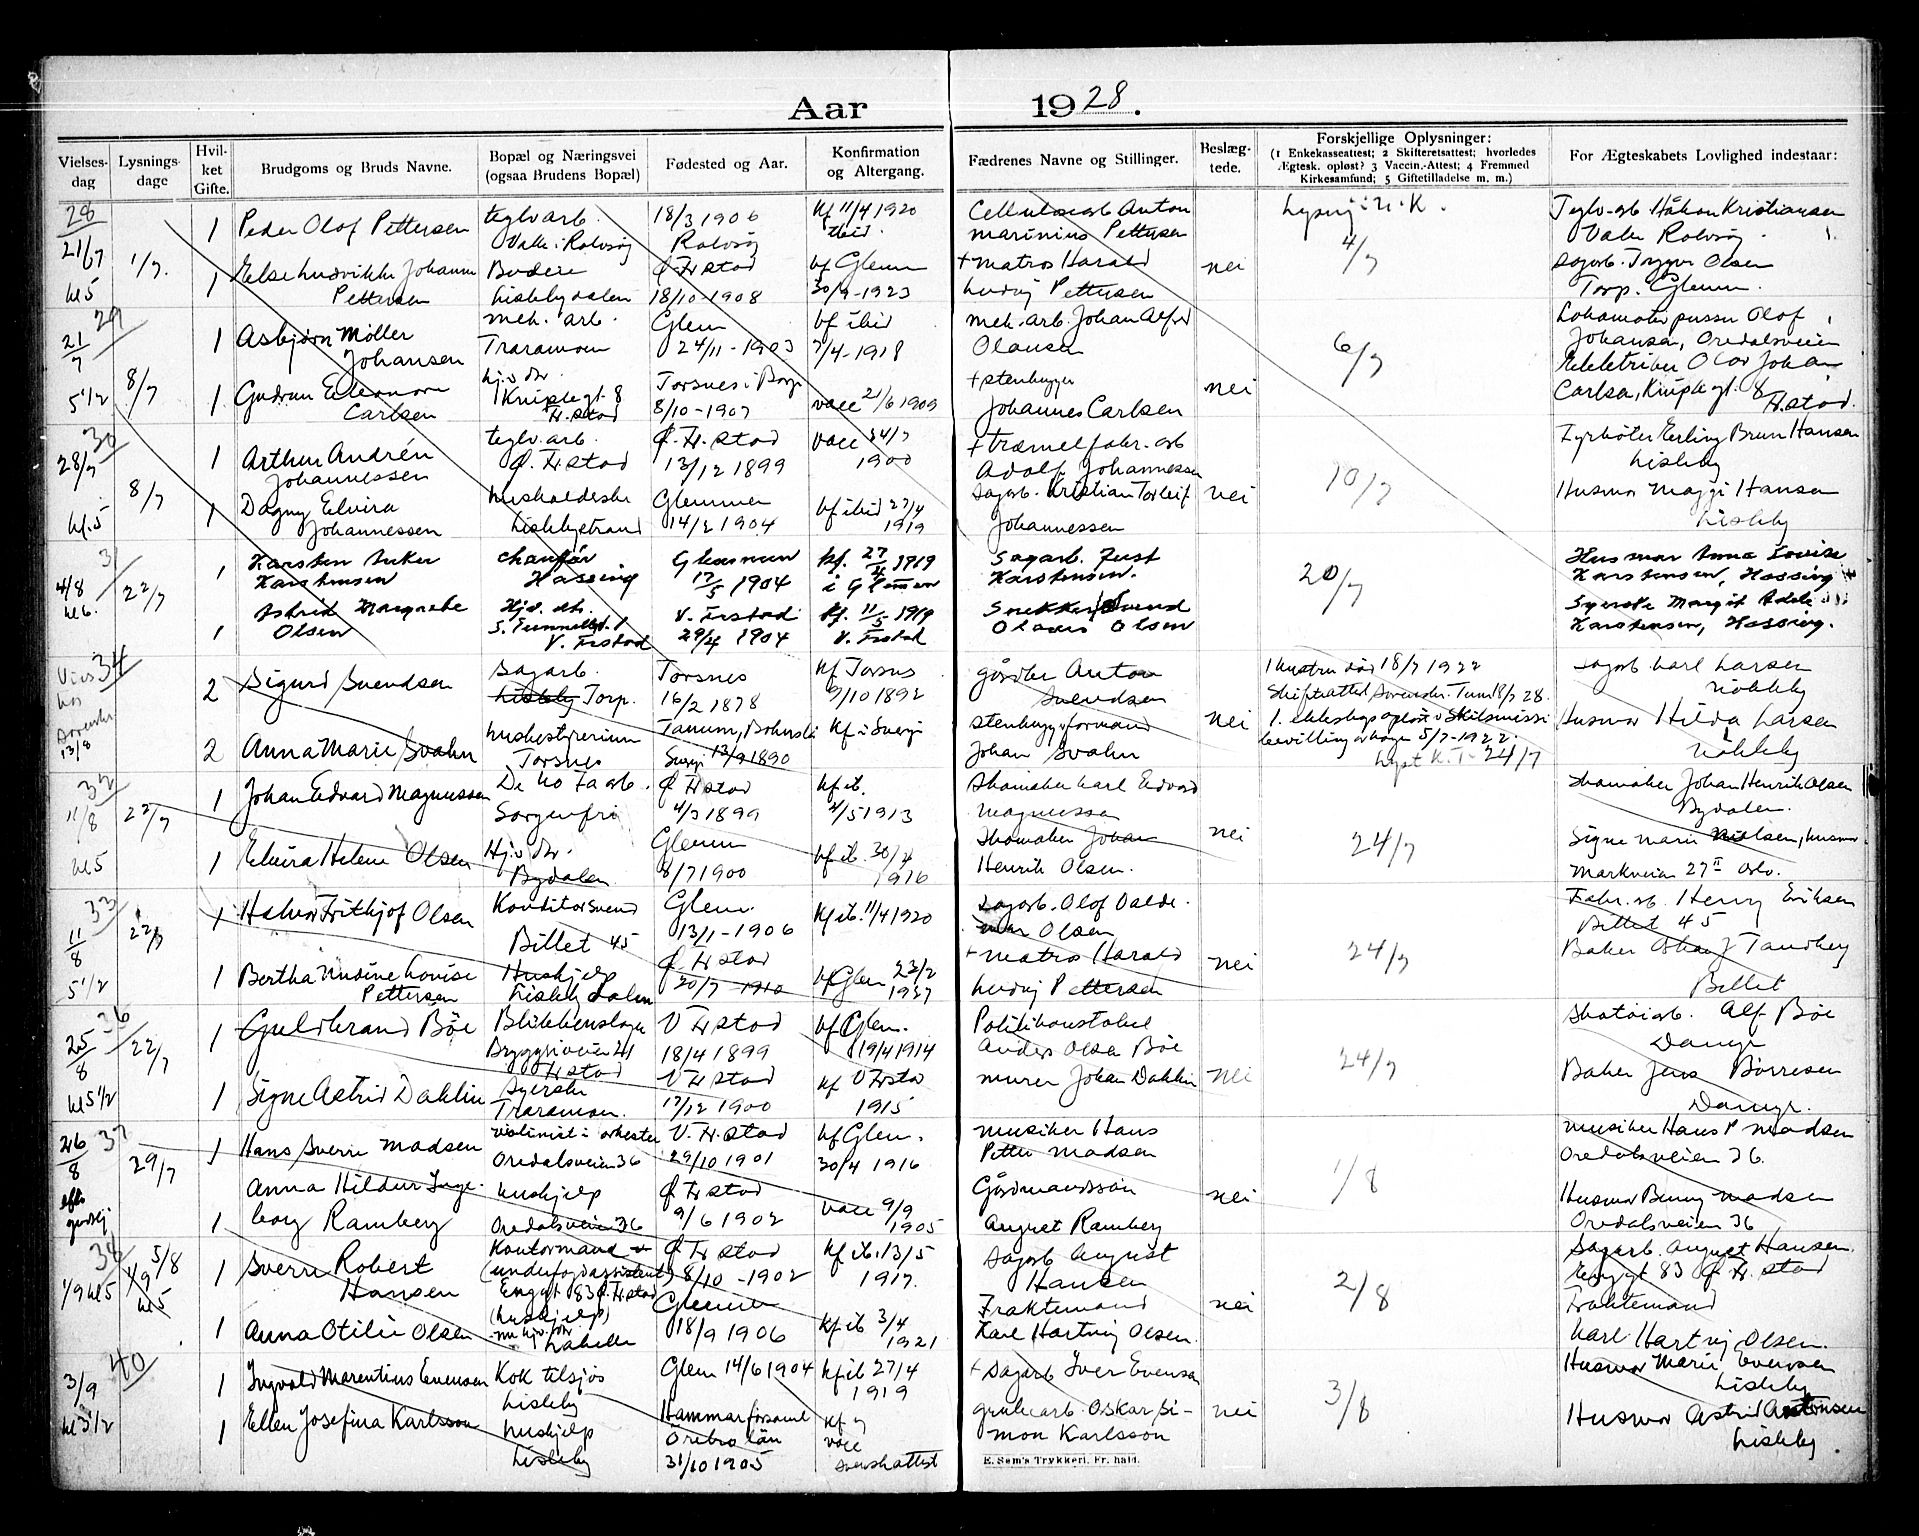 Aar 1928.
Vielses-dag
Lysnings-dage
Hvil-ket Gifte.
Brudgoms og Bruds Navne.
Bopæl og Næringsvei (ogsaa Brudens Bopæl)
Fødested og Aar.
Konfirmation og Altergang.
Fædrenes Navne og Stillinger.
Beslæg-tede.
Forskjellige Oplysninger:
(1 Enkekasseattest; 2 Skifteretsattest; hvorledes Ægtesk. opløst? 3 Vaccin.-Attest; 4 Fremmed Kirkesamfund; 5 Giftetilladelse m. m.)
For Ægteskabets Lovlighed indestaar:
28
21/7
kl 5
1/7.
1 Peder Olof Pettersen
teglv arb.
Valle i Rolvsøy
18/3 1906
Rolvsøy
kf 11/4 1920
ibid.
Cellulosearb Anton
Marinius Pettersen
4/7
Teglv. arb Håkon Kristiansen
Valle Rolvsøy
1 Else Ludvikke Johanne
Pettersen
Budeie
Lislebydalen
Ø. Fr.stad
18/10-1908
kf Glem
30/9-1923
+ Matros Harald
Ludvig Pettersen
nei
Sagarb. Trygve Olsen
Torp. Glem.
29
21/7
5 1/2
8/7
1 Asbjørn Møller
Johansen
mek. arb.
Traramoen
Glem
24/11-1903
kf ibid
7/4-1918
mek. arb. Johan Alfred
Olausen
6/7
Lokomotivpusser Olof
Johansen, Oredalsveien
1 Gudrun Eleonora
Carlsen
hj. v. dr.
Kniplegt 8
Fr.stad
Torsnes i Borge
8/10-1907
vacc 21/6 1909
+ stenhugger
Johannes Carlsen
nei
Elektriker Olav Johan
Carlsen, Kniplegt. 8
Fr.stad.
30
28/7
kl. 5
8/7
1 Arthur Andrén
Johannessen
teglv. arb.
Ø. Fr.stad
Ø. Fr. stad
13/12 1899
vacc 24/7
1900
+ træmelfabr. arb
Adolf Johannessen
10/7
Fyrbøter Erling Brun Hansen
Lisleby
1 Dagny Elvira
Johannessen
husholderske
Lislebystrand
Glemmen
14/2 1904
kf ibid 27/4
1919
Sagarb. Kristian Torleif
Johannessen
nei
Husmor Maggi Hansen
Lisleby
31
4/8
kl 6.
22/7
1 Karsten Anker
Karstensen
chaufør
Hassing
Glemmen
17/5 1904
kf. 27/4 1919
i Glemmen
Sagarb. Just
Karstensen.
20/7
Husmor Anna Lovise
Karstensen, Hassing
1 Astrid Margrethe
Olsen
Hjv. dtr.
V. Fr.stad
V. Fr.stad
29/4 1904
kf. 11/5 1919
V. Fr.stad
Snekker Svend
Olaus Olsen
Syerske Margit Adele
Karstensen, Hassing.
34
13/8
2 Sigurd Svendsen
Sagarb.
Lisleby Torp.
Torsnes
16/2 1878
kf Torsnes
9/10 1892
gårdbr Anton
Svendsen
1 hustru død 18/7 1922
Skifteattest Sorenskr. Tune 18/7 28.
Sagarb. Karl Larsen
Nøkleby
2 Anna Marie Svahn
husbestyrerinne
Torsnes
Tanum, Bohuslän
Sverige 12/9 1890
kf i Sverige
stenhuggerformand
Johan Svahn
nei
1. ekteskap opløst v Skilsmisse
bevilling av Kongen 5/7-1922.
24/7
Husmor Hilda Larsen
Nøkleby
32
11/8
kl 5
22/7
1 Johan Edvard Magnussen
De No Fa arb.
Sorgenfri
Ø Fr stad
4/3 1899
kf ib.
4/5 1913
Skomaker Karl Edvard
Magnussen
24/7
Skomaker Johan Henrik Olsen
Bydalen.
1 Elvira Helene Olsen
Hj. v dtr.
Bydalen
Glemm
8/7 1900
kf ib. 30/4
1916
Skomaker Johan
Henrik Olsen.
nei
Signe Marie Nielsen, husmor
Markveien 27 II Oslo.
33
11/8
5 1/2
22/7
1 Halvor Frithjof Olsen
Konditorsvend
Billet 45
Glem.
13/1-1906
kf ib. 11/4 1920
Sagarb. Olof Valde-
mar Olsen
24/7
Fabr. arb. Henry Eriksen
Billet 45
1 Bertha Nusine Lovise
Pettersen
Huskjelp
Lisleby dalen
Ø Fr stad
20/7 1910
kf Glem 23/2
1927
+ Matros Harald
Ludvig Pettersen
nei
Baker Johan J Tandberg
Billet
36
25/8
kl 5 1/2
22/7
1 Guldbrand Bøe
Blikkenslager
Bryggeriveien 21
Fr stad
V Fr stad
18/4 1899
kf Glem.
19/4 1914
Politikonstabel
Anders Olsen Bøe
24/7
Skotøiarb. Alf Bøe
Damyr
1 Signe Astrid Dahlin
Syerske
Traramoen.
V Fr stad
17/12 1900
kf V Frstad
1915
murer Johan Dahlin
nei
Baker Jens Børresen
Damyr.
37
26/8
efter
gudstj.
29/7
1 Hans Sverre Madsen
violinist i orkester
Oredalsveien 36
V. Fr. stad
29/10 1901
kf Glem.
30/4 1916
Musiker Hans
Petter Madsen
1/8
Musiker Hans P Madsen
Oredalsveien 36.
1 Anna Hildur Inge-
borg Ramberg
huskjelp
Oredalsveien 36
Ø Fr stad
9/6 1902
vacc 9/9
1905
Gårdmandssøn
August Ramberg
nei
Husmor Benny Madsen
Oredalsveien 36
38
1/9 kl 5
5/8
1/9
kl 5
1 Sverre Robert
Hansen
Kontormand
(underfogdassistent)
Enggt 83 Ø. Fr.stad
Ø Fr stad
8/10-1902
kf ib. 13/5
1917.
Sagarb August
Hansen
2/8
Sagarb. August Hansen.
Enggt 83 Ø Fr. stad
1 Anna Otilie Olsen
(huskjelp)
nu hjv. dtr.
Labella
Glemmen
18/9 1906
kf ib 3/4
1921
Fraktemand
Karl Hartvig Olsen.
nei
Fraktemand
Karl Hartvig Olsen.
40
3/9
kl 3 1/2
1 Ingvald Marentius Evensen
Kok tilsjøs
Lisleby
Glem 14/6 1904
kf ib 27/4
1919
+ Sagarb Iver Evensen
3/8
Husmor Marie Evensen
Lisleby
1 Ellen Josefina Karlsson
huskjelp
Lisleby
Hammar församl
Örebro län
31/10 1905
kf og
vacc
svensk attest
grubearb. Oskar Si-
mon Karlsson
nei
Husmor Astrid Antonsen
Lisleby.
E. Sem's Trykkeri, Fr. hald.